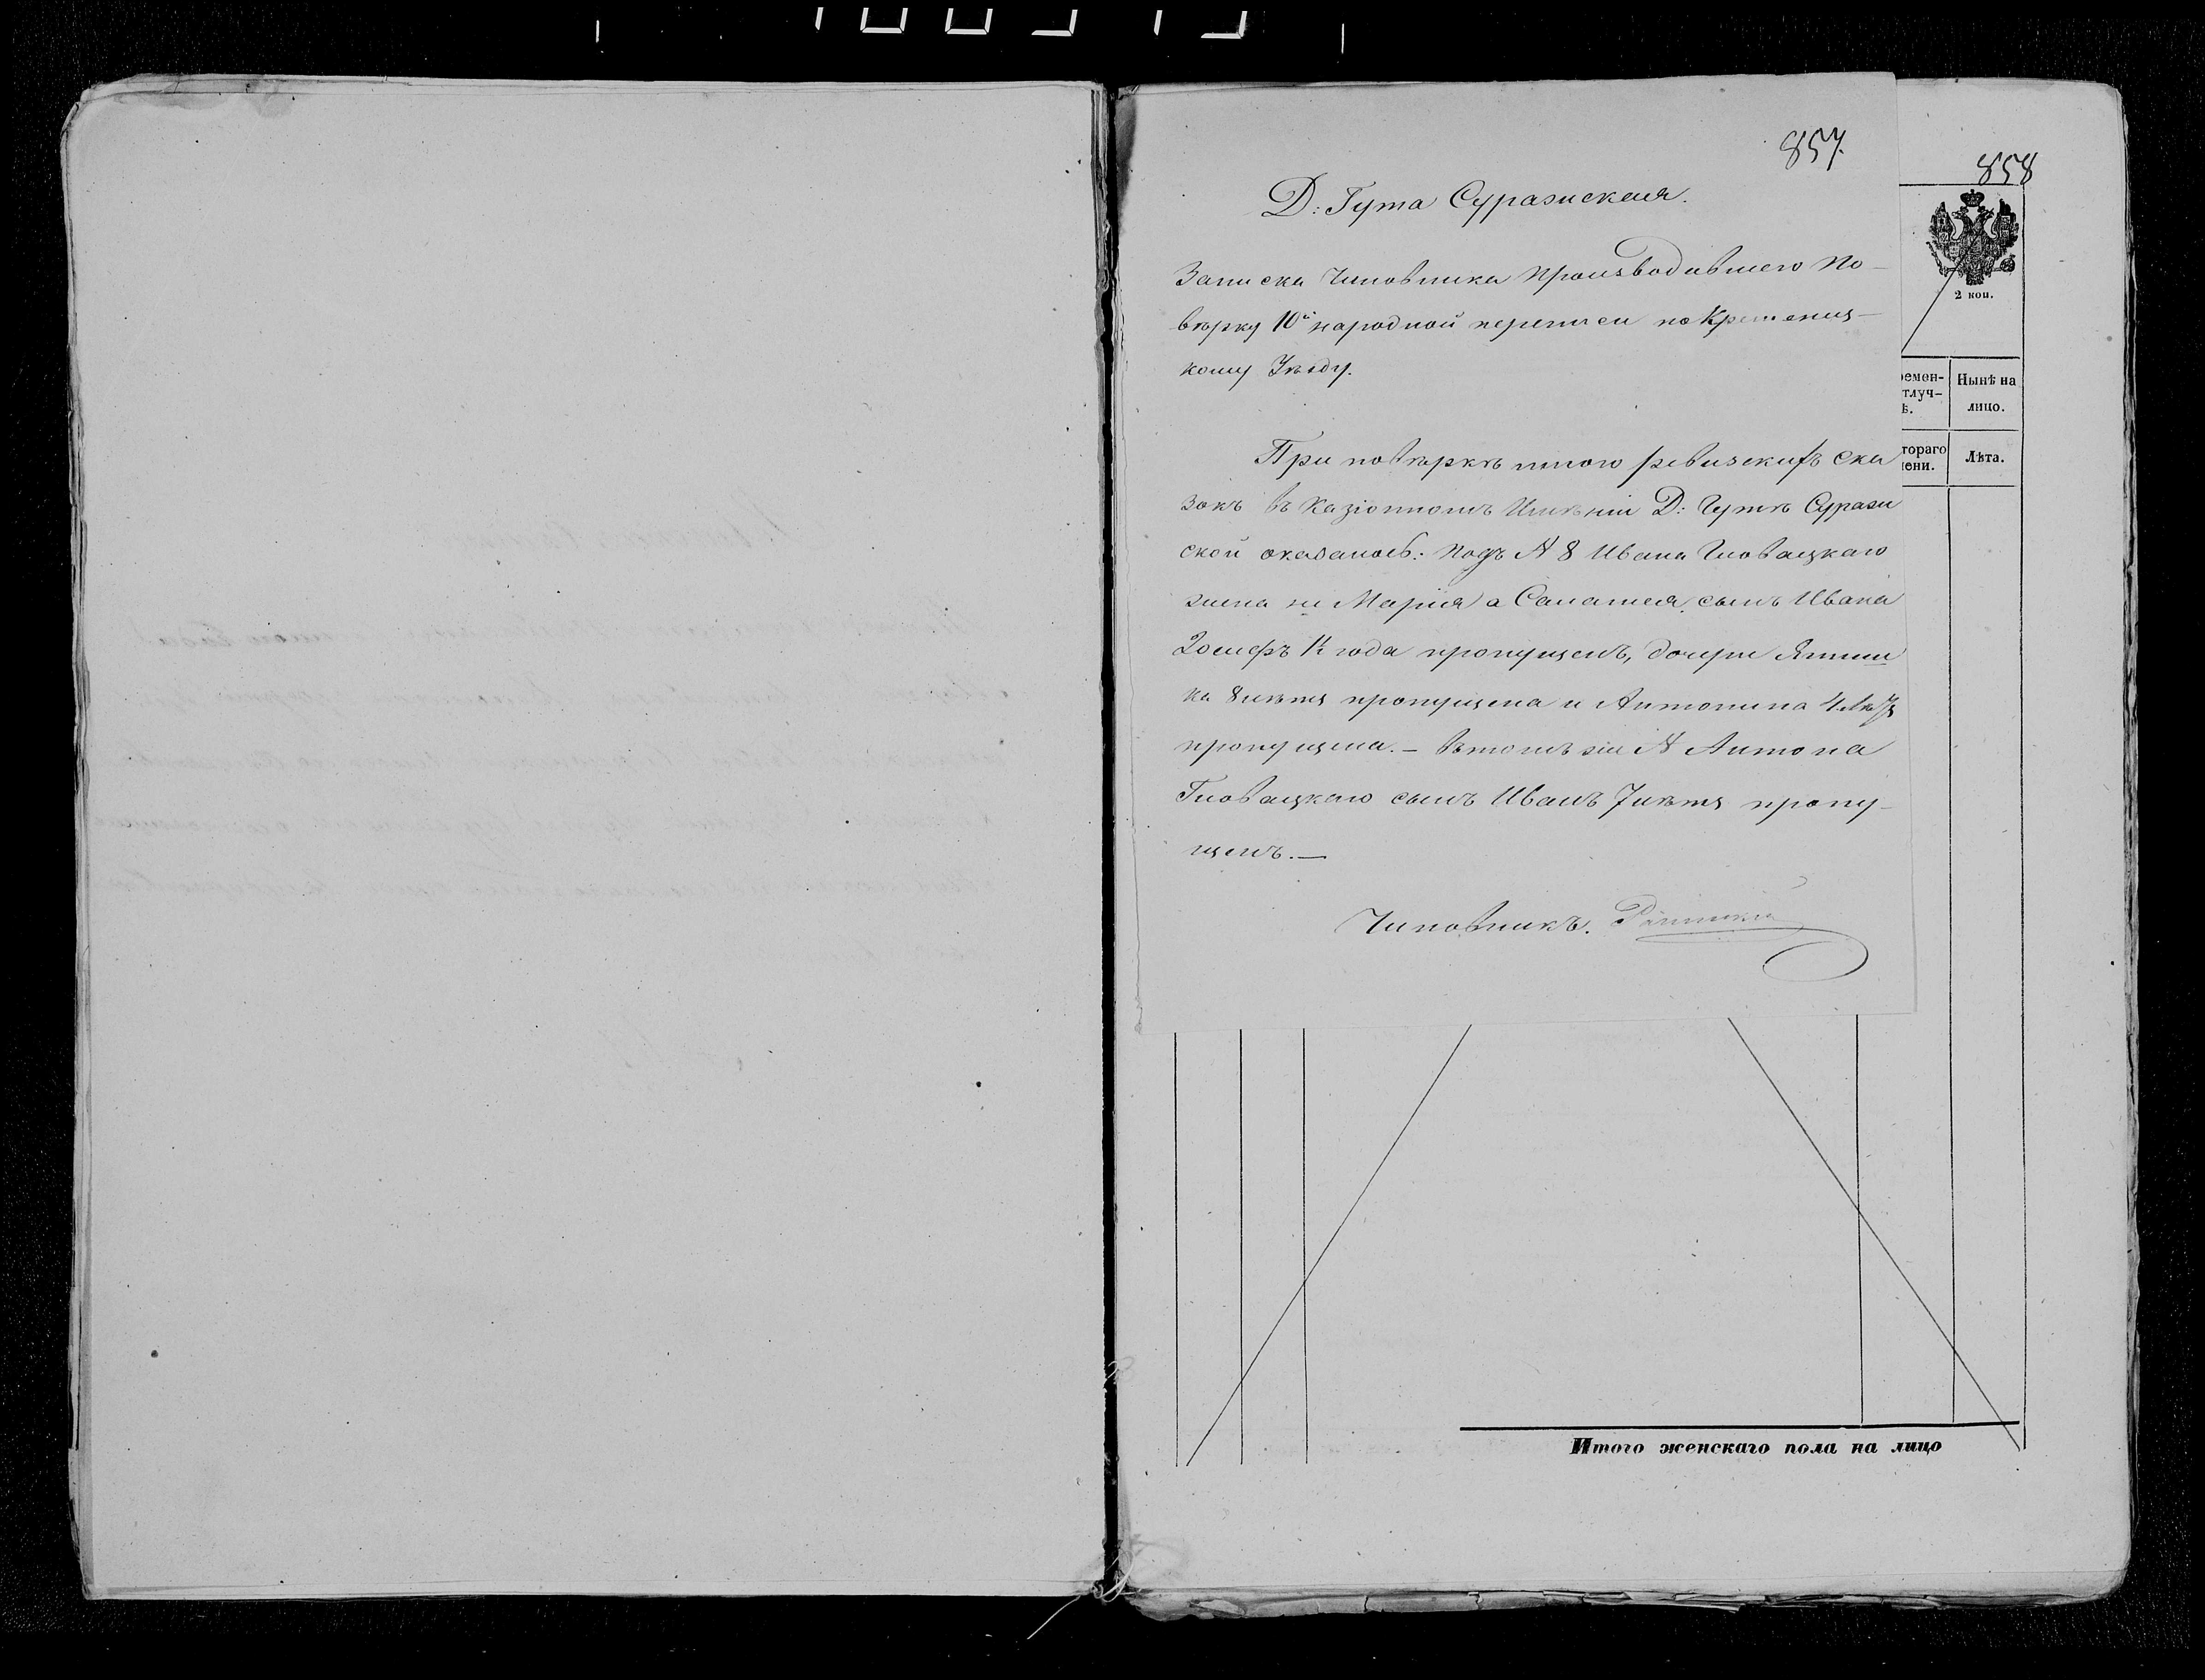 857.
858
Д: Гута Суражская.
Записка Чиновника производившего по-
вѣрку 10й народной переписи по Кременец-
кому Уѣзду.
При повѣркѣ мною ревизскихъ ска
зокъ въ Казіонномъ Имѣніи Д: Гутѣ Сураж
ской оказалось: подъ № 8 Ивана Гловацкаго
жена не Марія а Саломея, сынъ Ивана
Іосифъ 1½ года пропущенъ, дочери
ка 8 лѣтъ пропущена и Антонина 4 лѣтъ
пропущена. — въ томъ же № Антона
Гловацкаго сынъ Иванъ 7 лѣтъ пропу-
щенъ. —
Чиновникъ.
2 коп.
ремен-
тлуч-
ѣ.
Нынѣ на
лицо.
тораго
ени.
Лѣта.
Итого женскаго пола на лицо